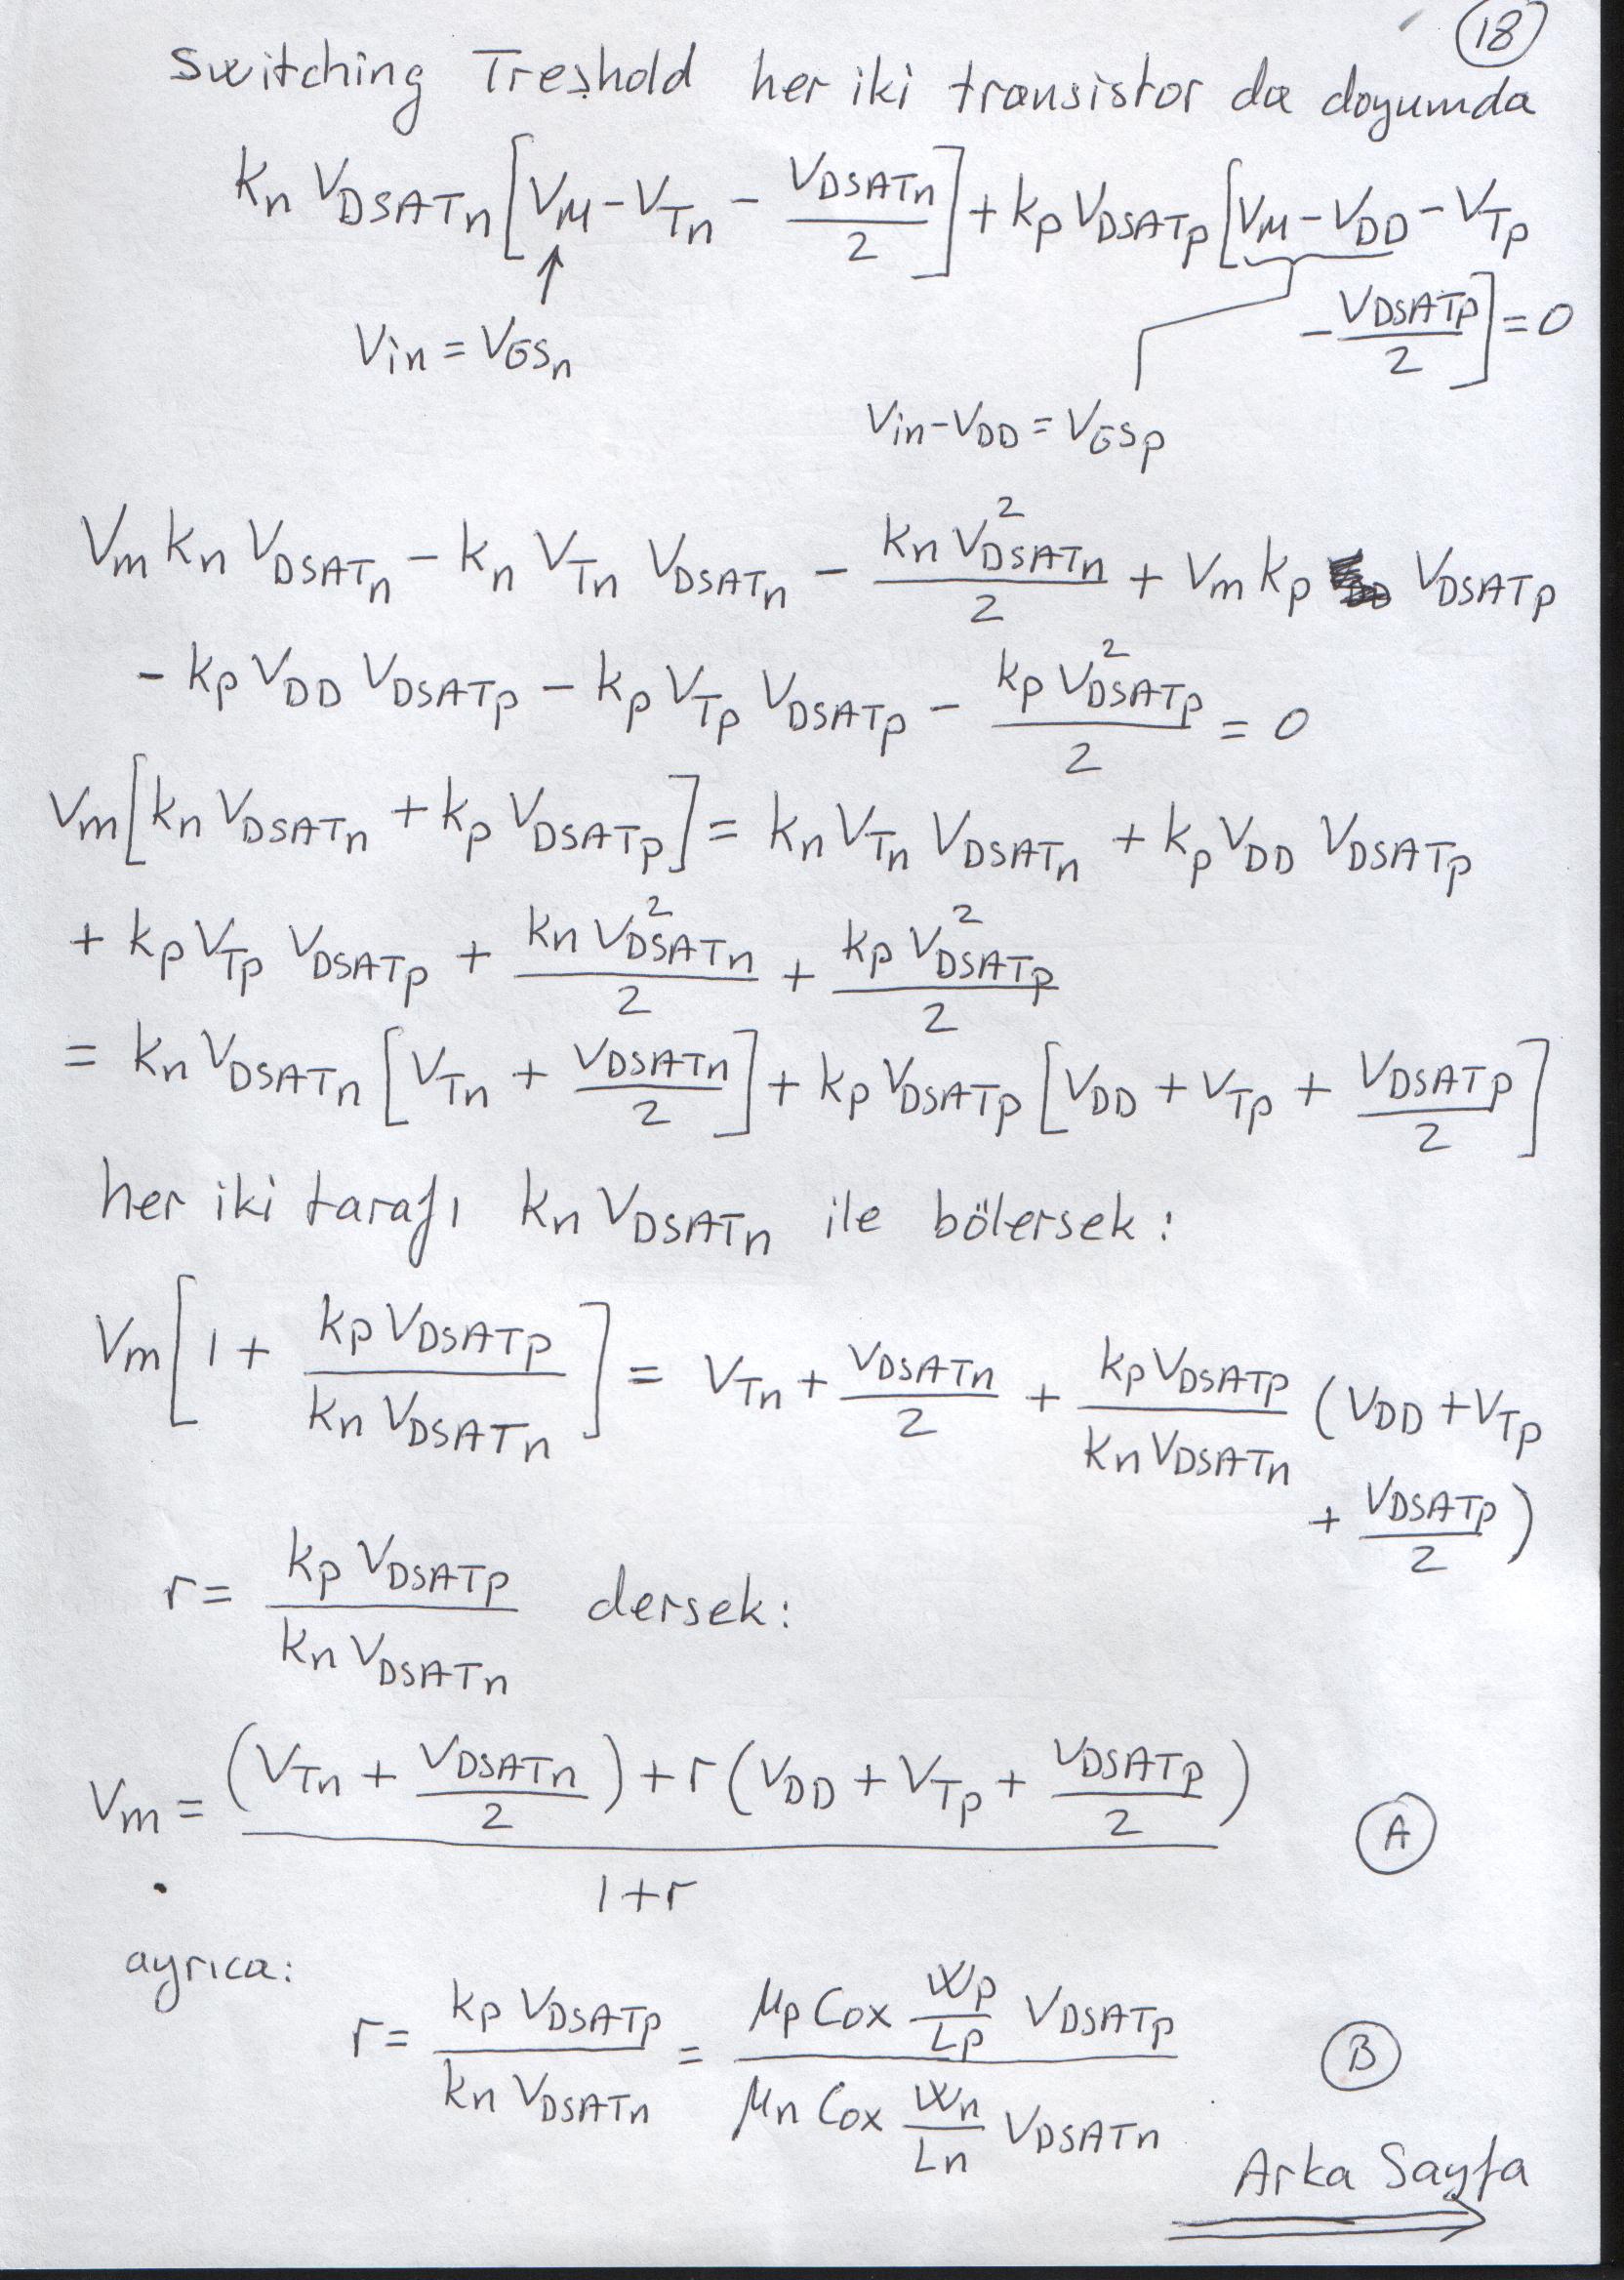 18
Switching Treshold her iki transistor da doyumda
kn VDSATn [VM - VTn - VDSATn/2] + kp VDSATp [VM - VDD - VTp
- VDSATp/2] = 0
Vin = VGSn
Vin - VDD = VGSp
Vm kn VDSATn - kn VTn VDSATn - kn V²DSATn/2 + Vm kp VDSATp
- kp VDD VDSATp - kp VTp VDSATp - kp V²DSATp/2 = 0
Vm [kn VDSATn + kp VDSATp] = kn VTn VDSATn + kp VDD VDSATp
+ kp VTp VDSATp + kn V²DSATn/2 + kp V²DSATp/2
= kn VDSATn [VTn + VDSATn/2] + kp VDSATp [VDD + VTp + VDSATp/2]
her iki tarafı kn VDSATn ile bölersek:
Vm [1 + kp VDSATp / kn VDSATn] = VTn + VDSATn/2 + kp VDSATp / kn VDSATn (VDD + VTp
+ VDSATp/2)
r = kp VDSATp / kn VDSATn dersek:
Vm = (VTn + VDSATn/2) + r (VDD + VTp + VDSATp/2) / 1+r A
ayrıca:
r = kp VDSATp / kn VDSATn = μp Cox Wp/Lp VDSATp / μn Cox Wn/Ln VDSATn B
Arka Sayfa